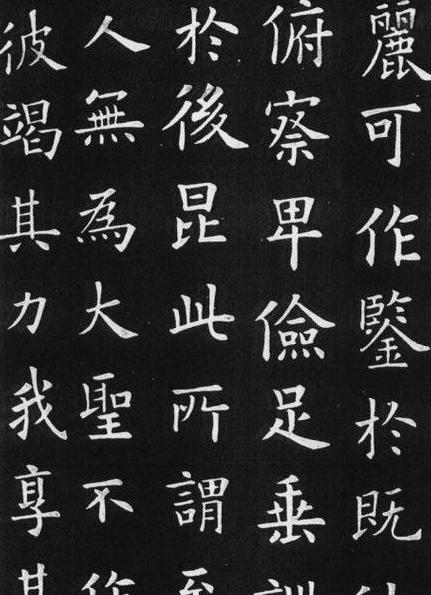 麗可作鑒於既
俯察卑儉足垂訓
於後昆此所謂至
人無為大聖不作
彼竭其力我享其